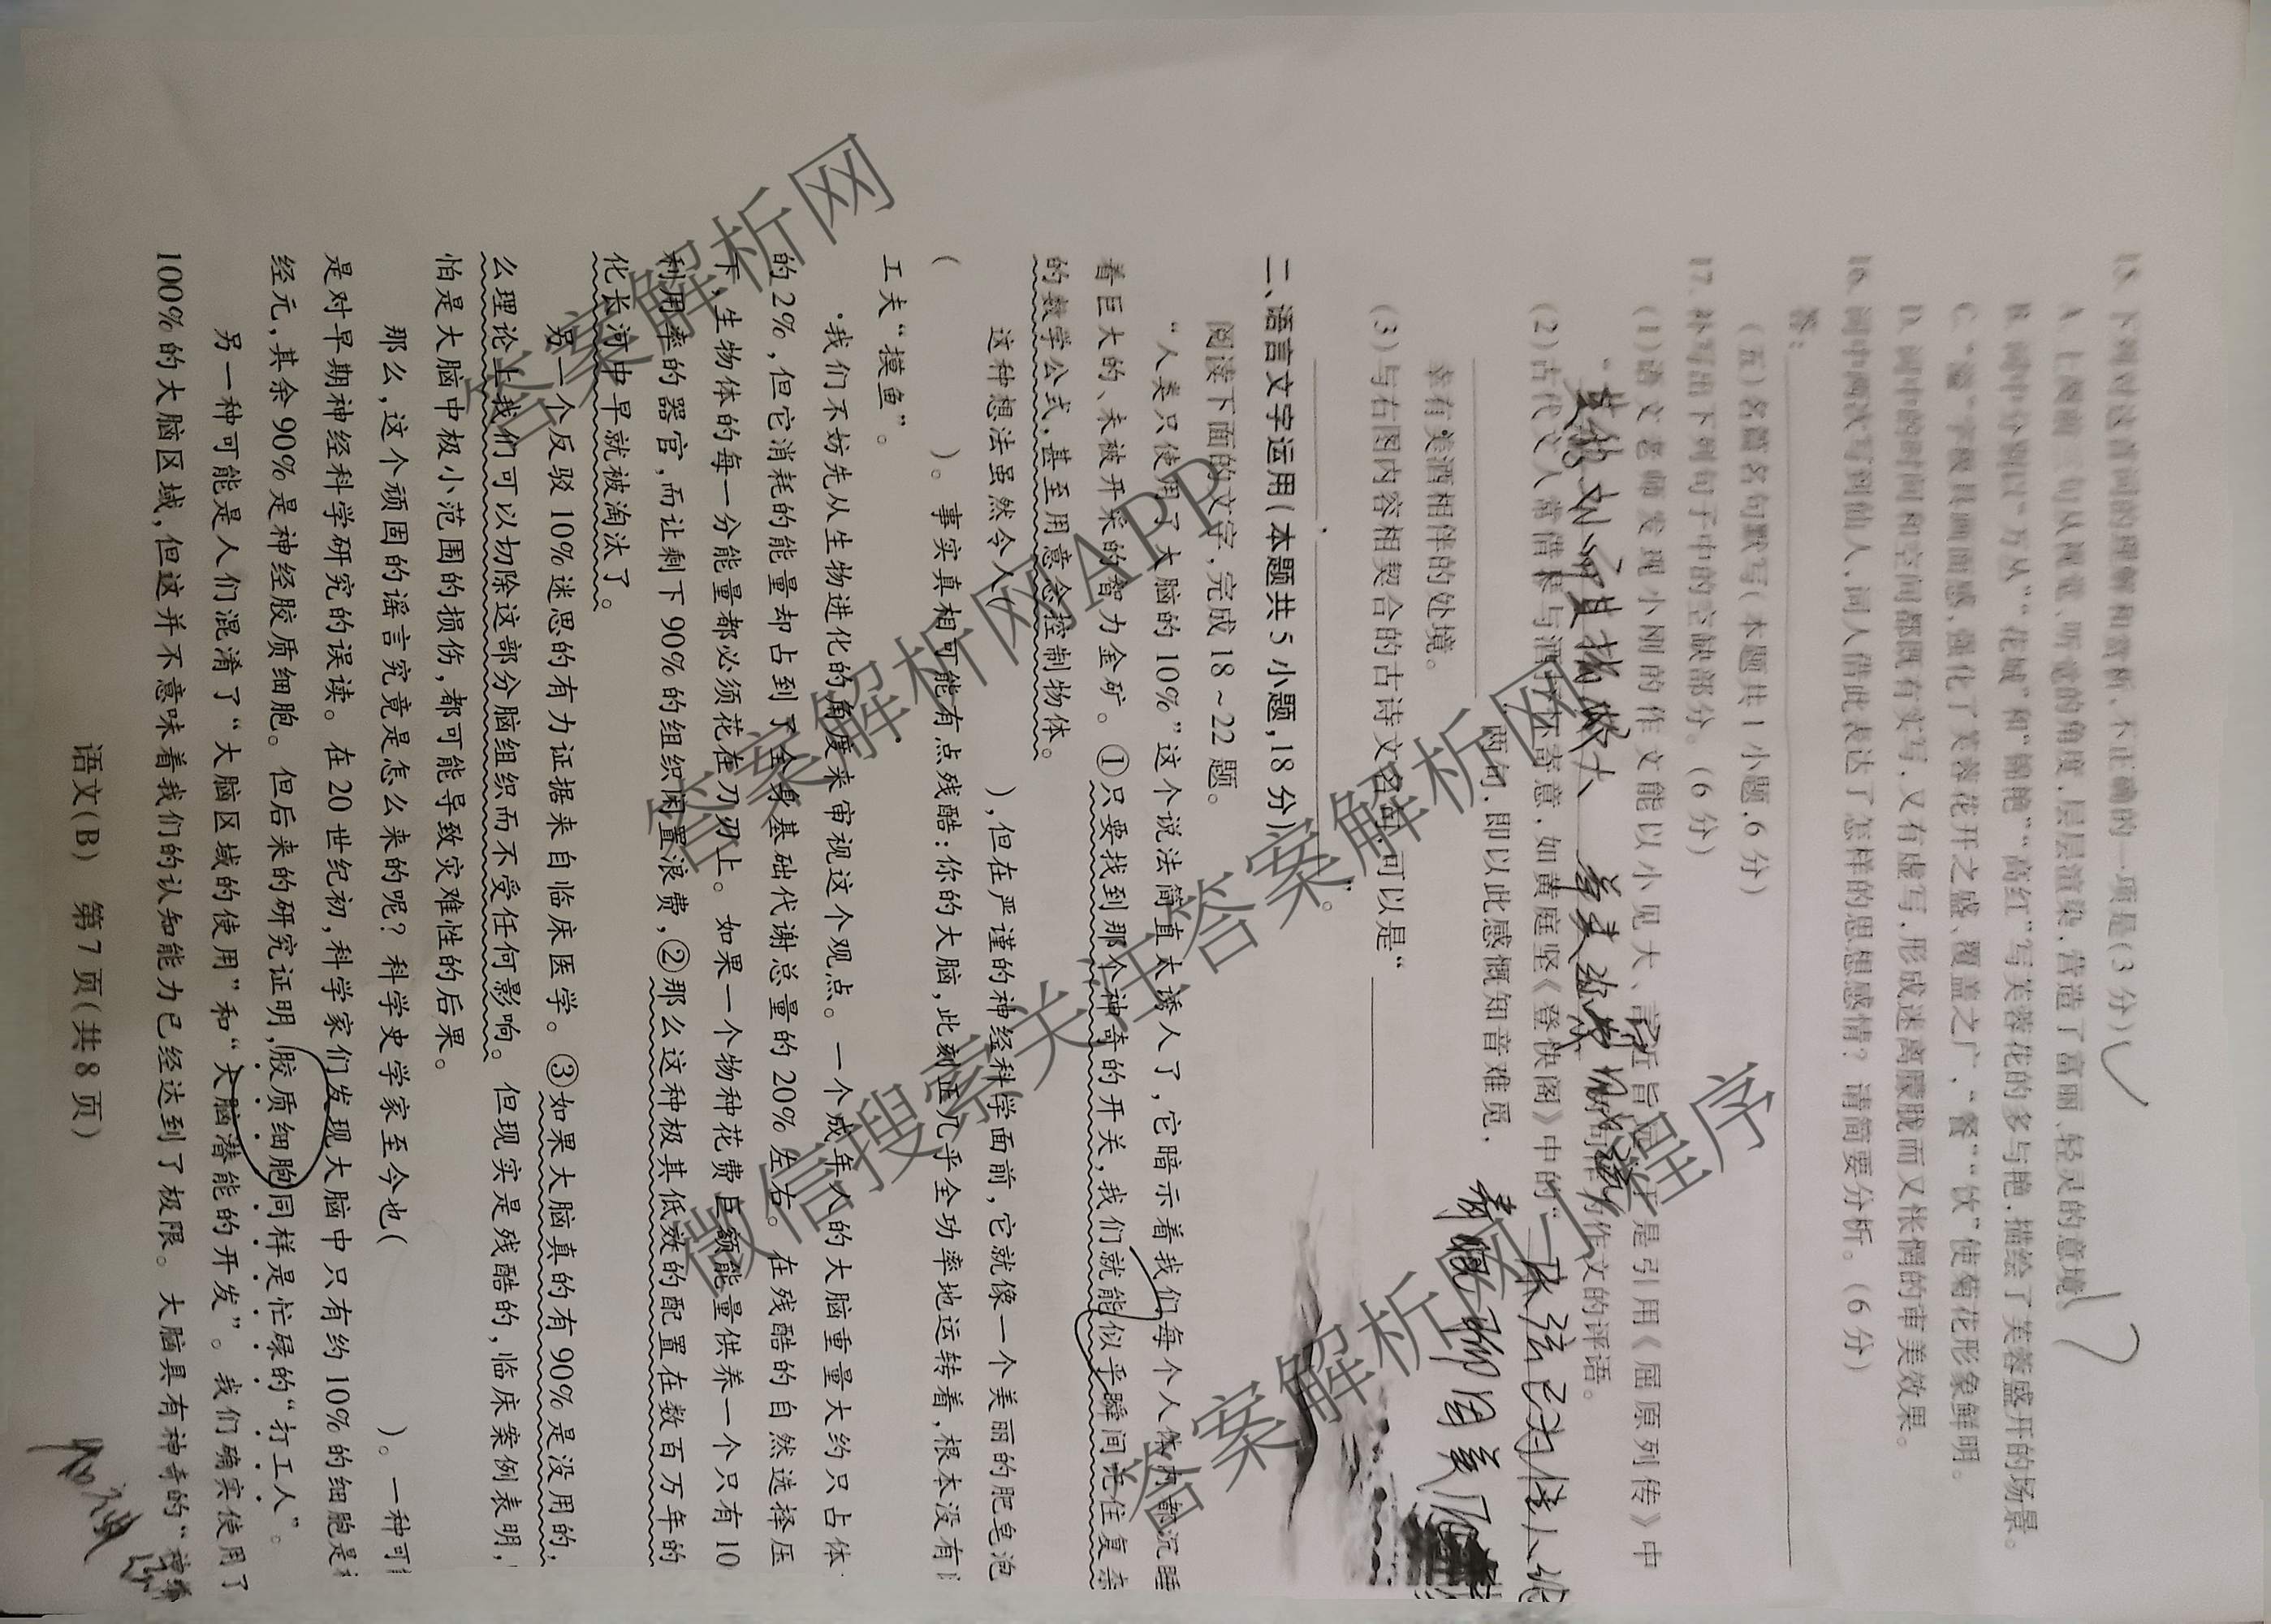 15. 下列对这首词的理解和赏析,不正确的一项是(3分)
A. 上阕前三句从视觉、听觉的角度,层层渲染,营造了富丽、轻灵的意境。
B. 词中分别以“万丛”“花城”和“锦艳”“高红”写芙蓉花的多与艳,描绘了芙蓉盛开的场景。
C. “遍”字极具画面感,强化了芙蓉花开之盛、覆盖之广,“餐”“饮”使菊花形象鲜明。
D. 词中的时间和空间都既有实写,又有虚写,形成迷离朦胧而又怅惘的审美效果。
16. 词中两次写到仙人,词人借此表达了怎样的思想感情?请简要分析。(6分)
答:
(五)名篇名句默写(本题共1小题,6分)
17. 补写出下列句子中的空缺部分。(6分)
(1)语文老师发现小刚的作文能以小见大、言近旨远,于是引用《屈原列传》中
“其称文小而其指极大
(2)古代文人常借琴与酒抒怀寄意,如黄庭坚《登快阁》中的“
朱弦已为佳人绝
青眼聊因美酒横
两句,即以此感慨知音难觅,
幸有美酒相伴的处境。
(3)与右图内容相契合的古诗文名句,可以是“
,”。
二、语言文字运用(本题共5小题,18分)
阅读下面的文字,完成18~22题。
“人类只使用了大脑的10%”这个说法简直太诱人了,它暗示着我们每个人体内都沉睡
着巨大的、未被开采的智力金矿。①只要找到那个神奇的开关,我们就能似乎瞬间记住复杂
的数学公式,甚至用意念控制物体。
这种想法虽然令人( ),但在严谨的神经科学面前,它就像一个美丽的肥皂泡
( )。事实真相可能有点残酷:你的大脑,此刻正几乎全功率地运转着,根本没有
工夫“摸鱼”。
我们不妨先从生物进化的角度来审视这个观点。一个成年人的大脑重量大约只占体
的2%,但它消耗的能量却占到了全身基础代谢总量的20%左右。在残酷的自然选择压
下,生物体的每一分能量都必须花在刀刃上。如果一个物种花费巨额能量供养一个只有10
利用率的器官,而让剩下90%的组织闲置浪费,②那么这种极其低效的配置在数百万年的
化长河中早就被淘汰了。
另一个反驳10%迷思的有力证据来自临床医学。③如果大脑真的有90%是没用的,
么理论上我们可以切除这部分脑组织而不受任何影响。但现实是残酷的,临床案例表明,
怕是大脑中极小范围的损伤,都可能导致灾难性的后果。
那么,这个顽固的谣言究竟是怎么来的呢?科学史学家至今也( )。一种可
是对早期神经科学研究的误读。在20世纪初,科学家们发现大脑中只有约10%的细胞是
经元,其余90%是神经胶质细胞。但后来的研究证明,胶质细胞同样是忙碌的“打工人”。
另一种可能是人们混淆了“大脑区域的使用”和“大脑潜能的开发”。我们确实使用了
100%的大脑区域,但这并不意味着我们的认知能力已经达到了极限。大脑具有神奇的“神
语文(B) 第7页(共8页)
答案解析网
答案解析网APP
微信搜索关注答案解析网
答案解析网小程序